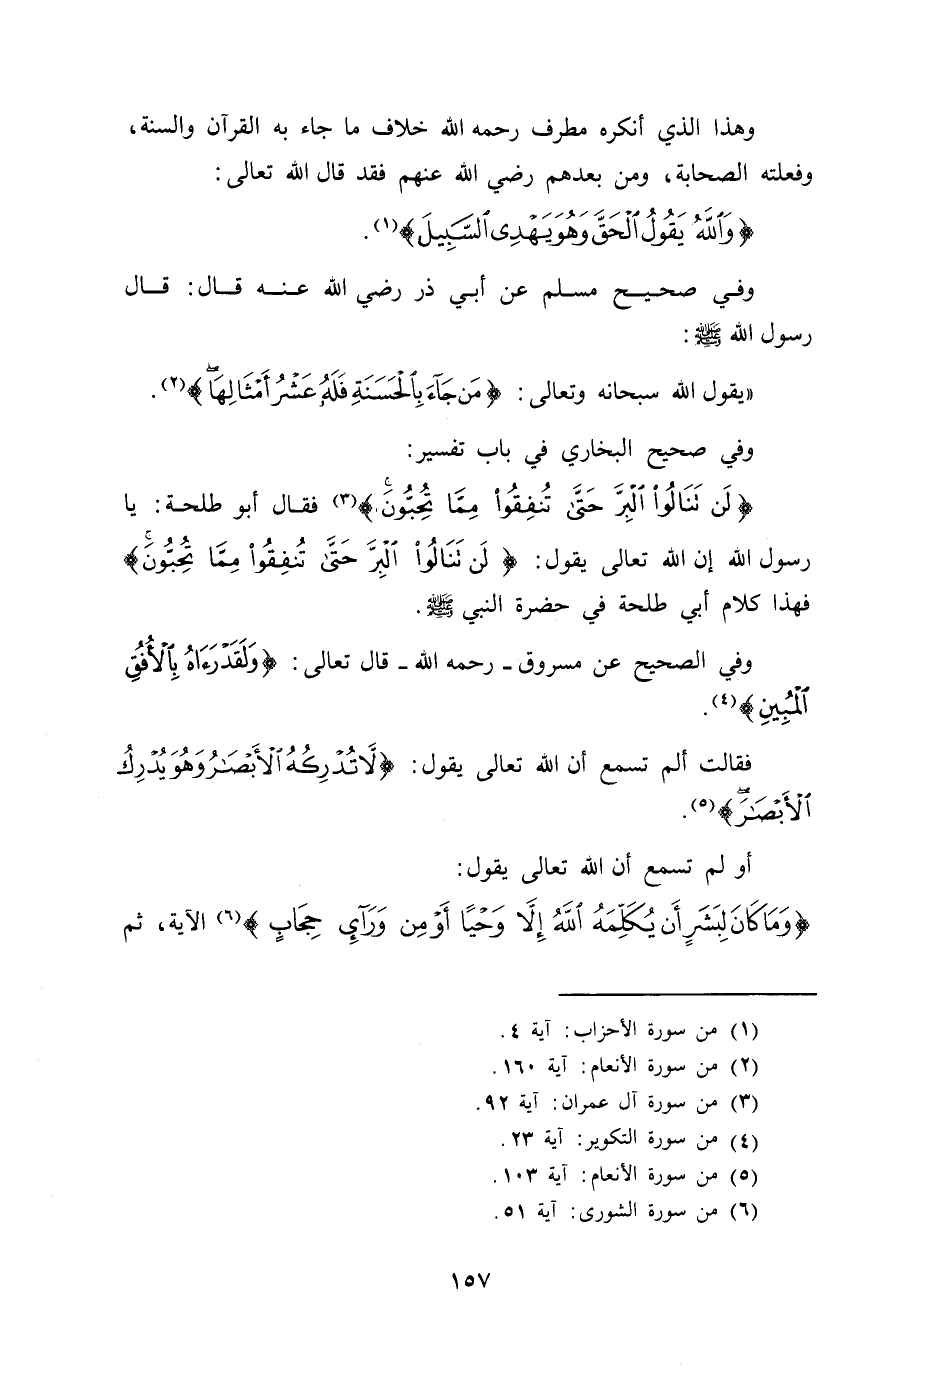 وهذا الذي أنكره مطرف رحمه الله خلاف ما جاء به القرآن والسنة،
وفعلته الصحابة، ومن بعدهم رضي الله عنهم فقد قال الله تعالى:
﴿وَٱللَّهُ يَقُولُ ٱلْحَقَّ وَهُوَ يَهْدِى ٱلسَّبِيلَ﴾(١).
وفي صحيح مسلم عن أبي ذر رضي الله عنه قال: قال
رسول الله ﷺ:
«يقول الله سبحانه وتعالى: ﴿مَن جَآءَ بِٱلْحَسَنَةِ فَلَهُۥ عَشْرُ أَمْثَالِهَاۖ﴾(٢).
وفي صحيح البخاري في باب تفسير:
﴿لَن نَنَالُوا۟ ٱلْبِرَّ حَتَّىٰ تُنفِقُوا۟ مِمَّا تُحِبُّونَۚ﴾(٣) فقال أبو طلحة: يا
رسول الله إن الله تعالى يقول: ﴿لَن نَنَالُوا۟ ٱلْبِرَّ حَتَّىٰ تُنفِقُوا۟ مِمَّا تُحِبُّونَۚ﴾
فهذا كلام أبي طلحة في حضرة النبي ﷺ.
وفي الصحيح عن مسروق ـ رحمه الله ـ قال تعالى: ﴿وَلَقَدْ رَءَاهُ بِٱلْأُفُقِ
ٱلْمُبِينِ﴾(٤).
فقالت ألم تسمع أن الله تعالى يقول: ﴿لَّا تُدْرِكُهُ ٱلْأَبْصَٰرُ وَهُوَ يُدْرِكُ
ٱلْأَبْصَٰرَۖ﴾(٥).
أو لم تسمع أن الله تعالى يقول:
﴿وَمَا كَانَ لِبَشَرٍ أَن يُكَلِّمَهُ ٱللَّهُ إِلَّا وَحْيًا أَوْ مِن وَرَآئِ حِجَابٍ﴾(٦) الآية، ثم
(١) من سورة الأحزاب: آية ٤.
(٢) من سورة الأنعام: آية ١٦٠.
(٣) من سورة آل عمران: آية ٩٢.
(٤) من سورة التكوير: آية ٢٣.
(٥) من سورة الأنعام: آية ١٠٣.
(٦) من سورة الشورى: آية ٥١.
١٥٧